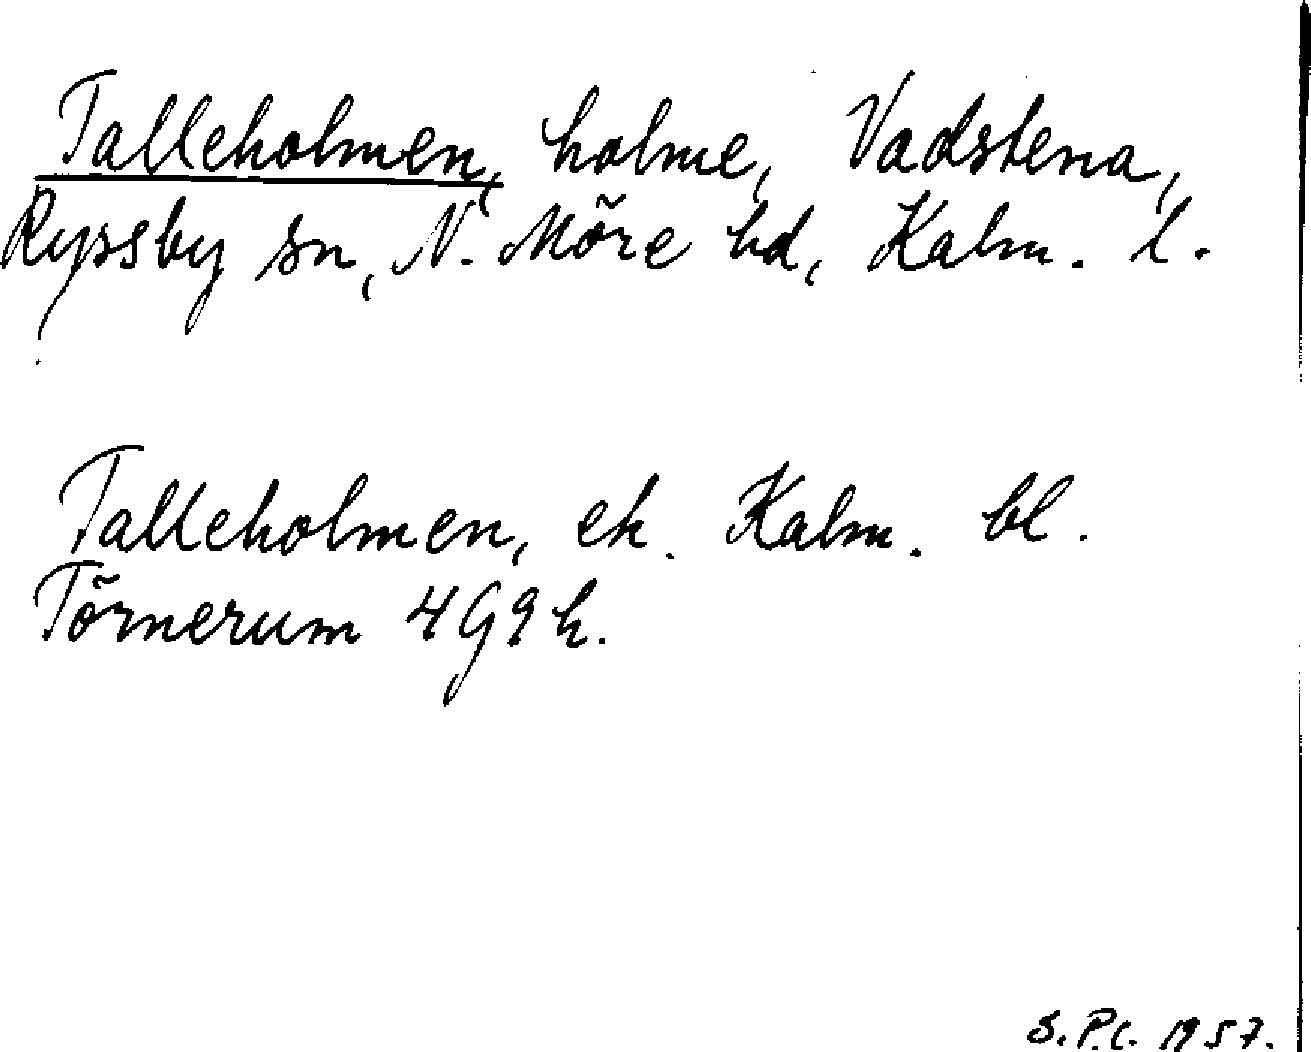 Talleholmen, holme, Vadstena,
Ryssby sn, N. Möre hd, Kalm. l.
Talleholmen, ek. Kalm. bl.
Törnerum 4G9h.
S.P.C. 1957.